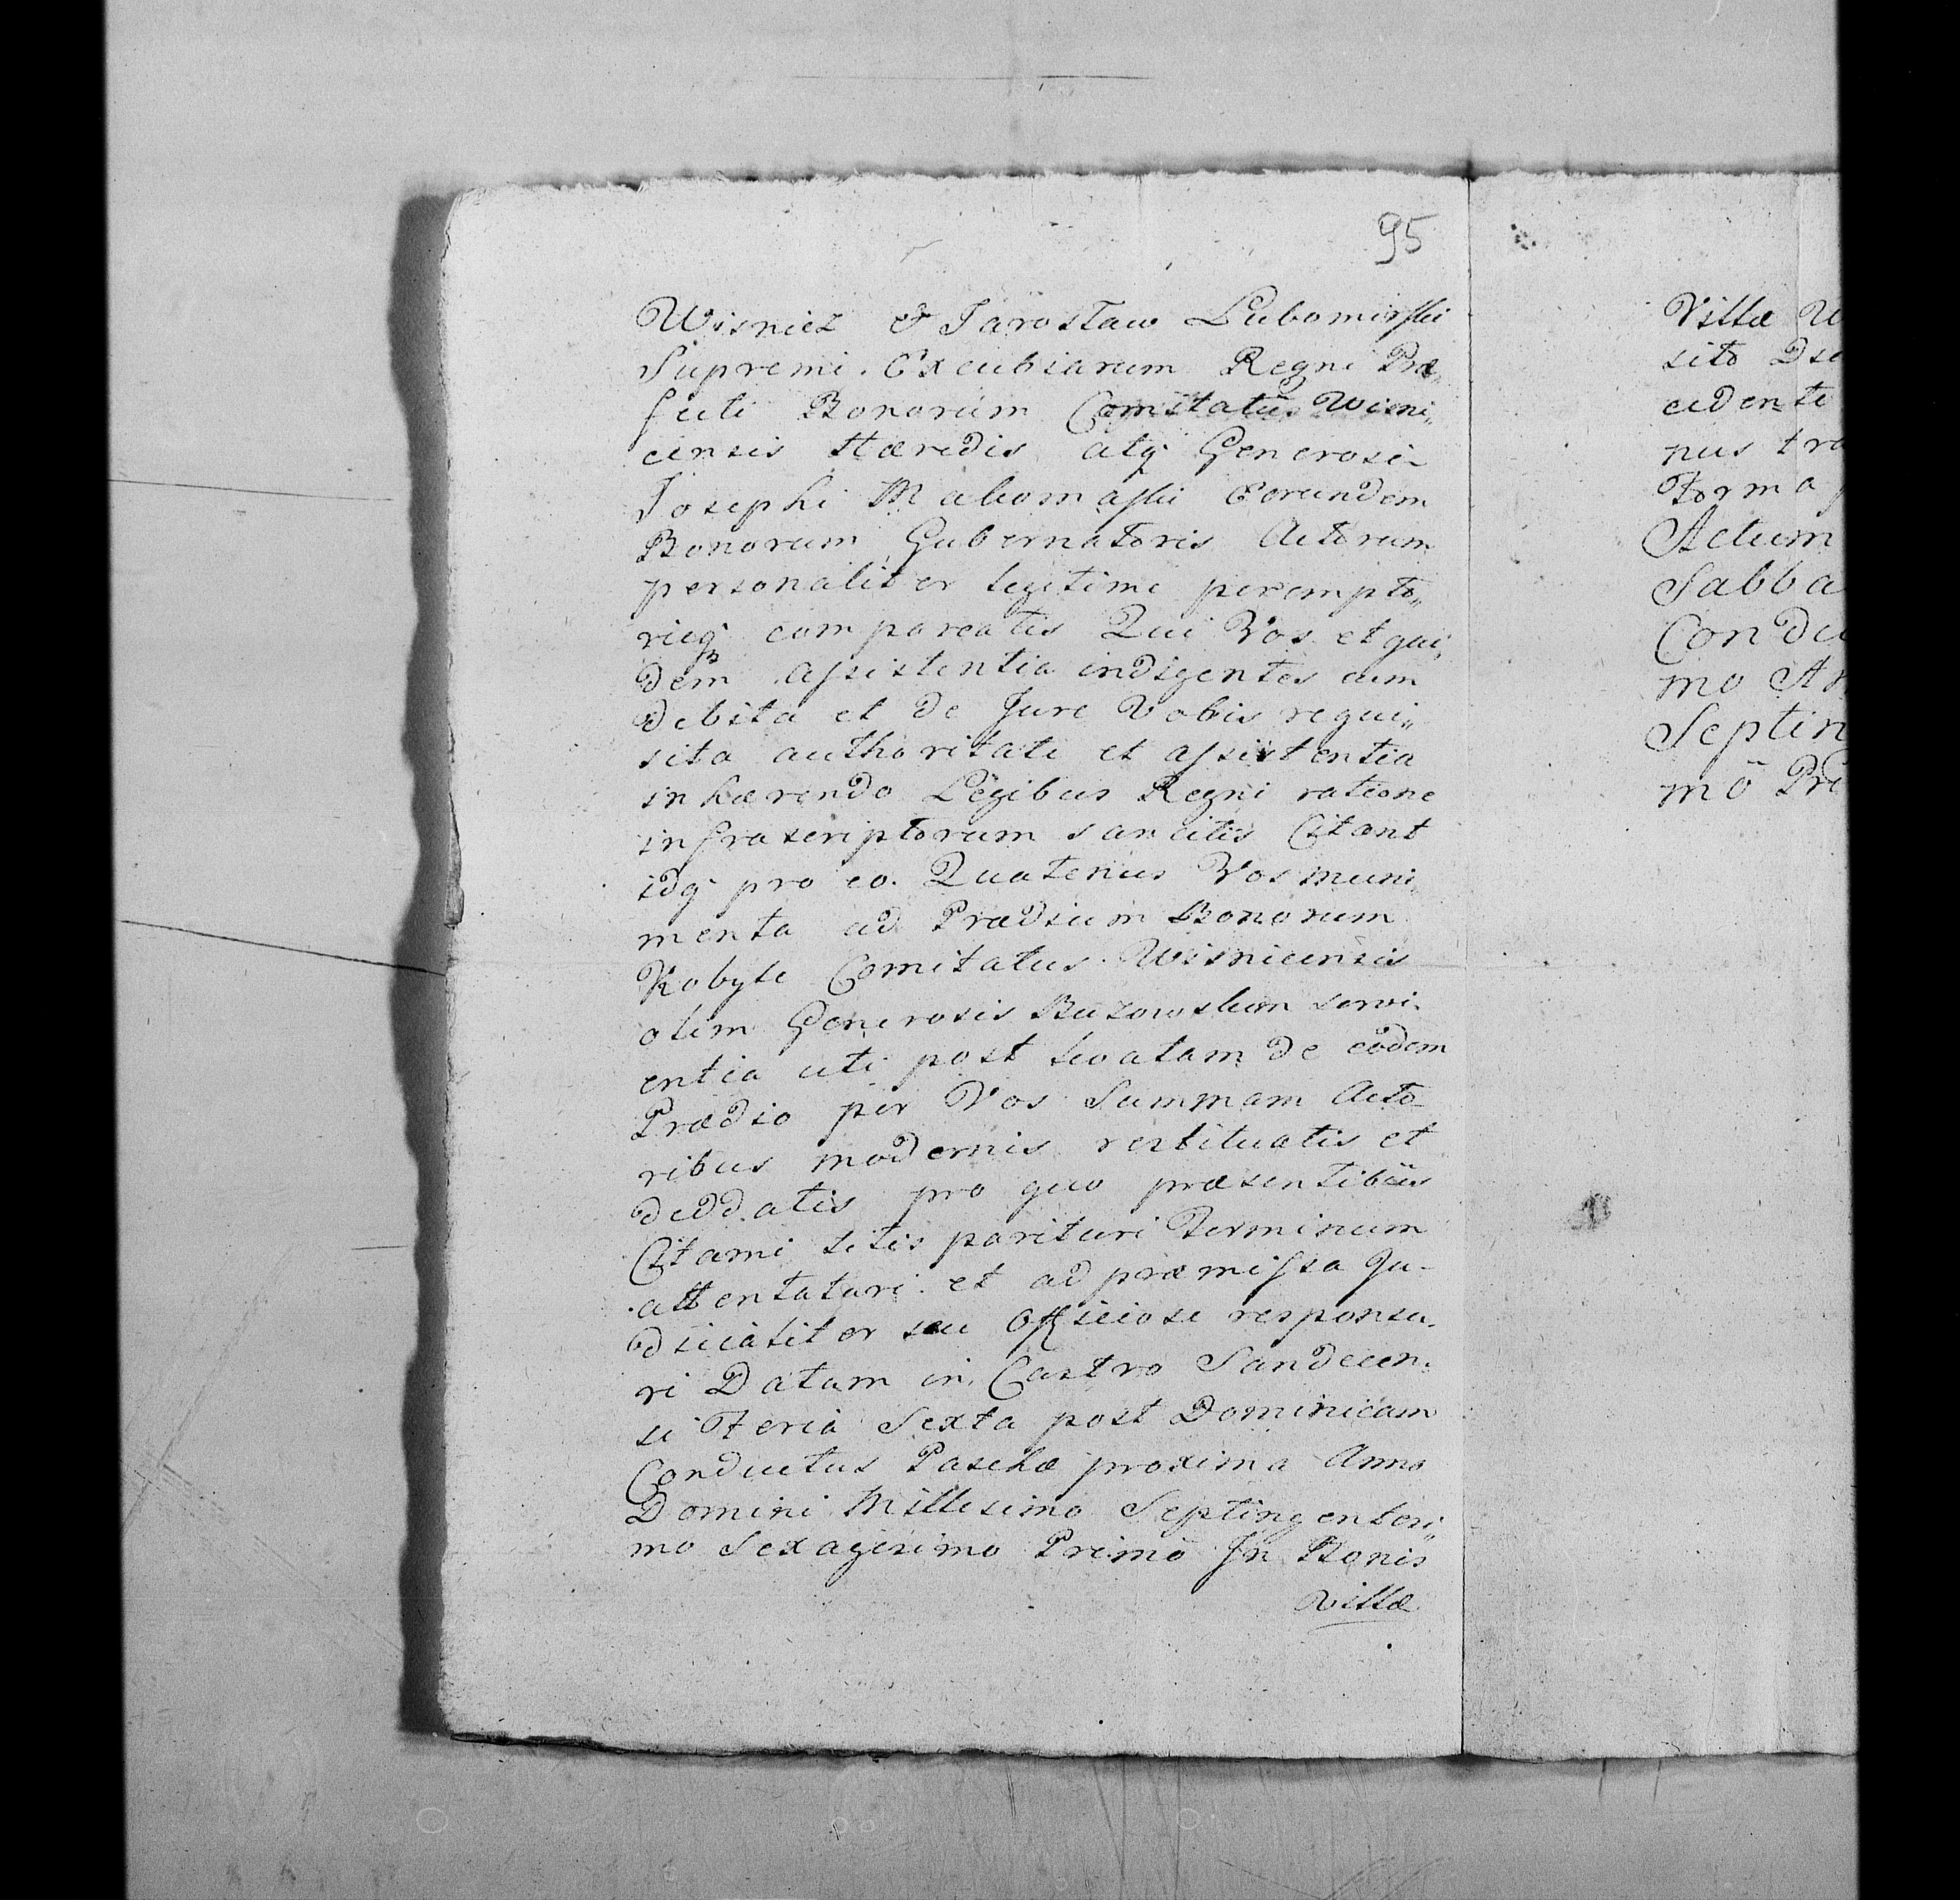 95
Wisnicz & Jarosław Lubomirski
Supremi Excubiarum Regni Præ„
fecti Bonorum Comitatûs Wisni„
censis Hæredis atq Generosi
Josephi Eorundem
Bonorum Gubernatoris Actorum
personaliter legitime perempto„
rieq compareatis Qui Vos et qui„
dem assistentia indigentes cum
debita et de Jure Vobis requi„
sita authoritate et assistentia
inhærendo Legibus Regni ratione
infrascriptorum sancitis Citant
idq pro eo. Quatenus Vos muni„
menta ad Prædium Bonorum
Kobyle Comitatus Wisnicensis
olim Generosis servi„
entia uti post levatam de eodem
Prædio per Vos Summam Acto
ribus modernis restituatis et
deddatis pro quo præsentibus
Citami sitis parituri Terminum
attentaturi et ad præmissa Ju-
dicialiter seu Officiose responsu„
ri Datum in Castro Sandecen„
si Feria Sexta post Dominicam
Conductus Paschæ proxima Anno
Domini Millesimo Septingentesi„
mo Sexagesimo Primo In Bonis
Villæ
Villæ
sito
cedente
nus
Forma
Actum
Sabba
Condu
mo
Septin
mo Pri